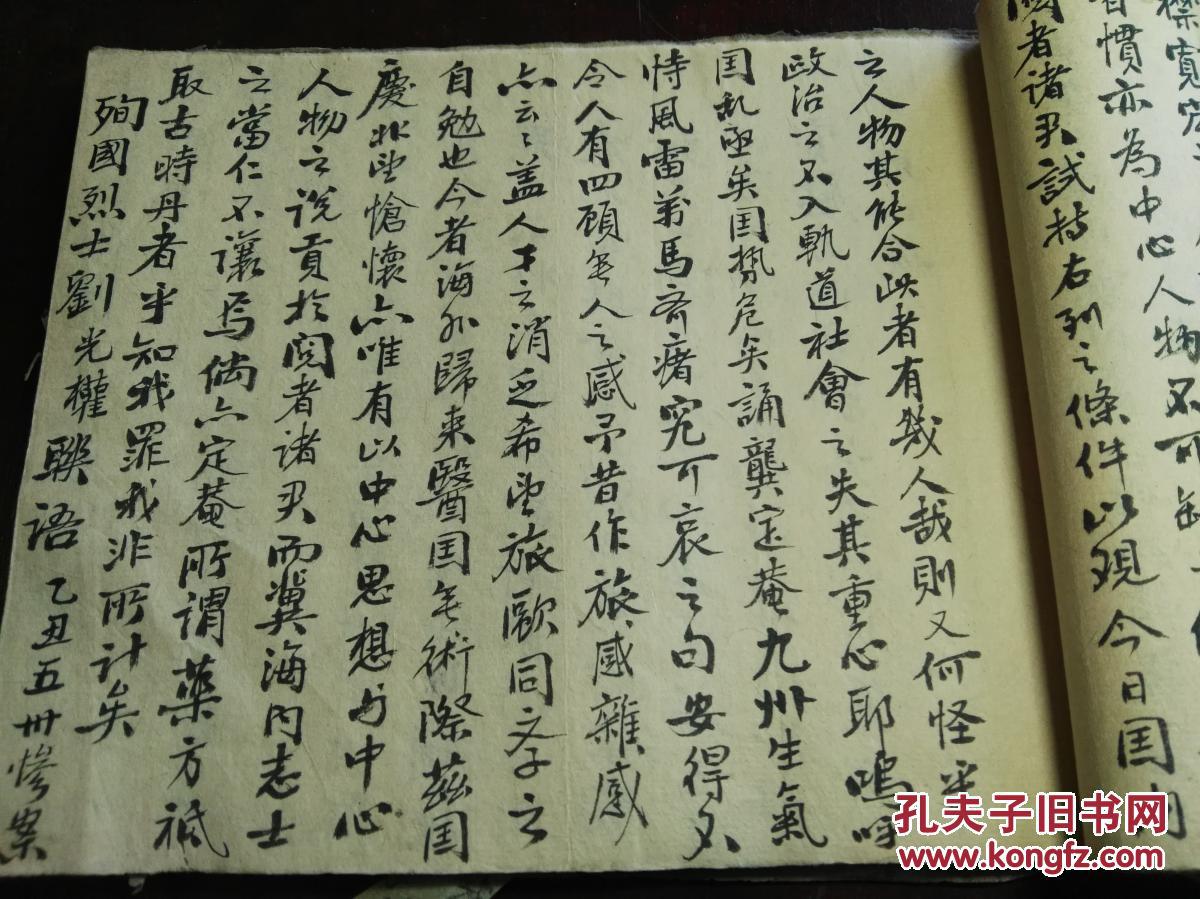 標寬宏
者慣亦為中心人物不可
國者諸君試持右列之條件以現今日国内
之人物其能合此者有幾人哉則又何怪乎
政治之不入軌道社會之失其重心耶嗚呼
国乱亟矣国勢危矣誦龔定菴九州生氣
恃風雷萬馬齊瘏究可哀之句安得不
令人有四顧无人之感予昔作旅感雜感
亦云云盖人才之消乏希望旅歐同文子之
自勉也今者海外歸来醫国无術際茲国
慶北望愴懷亦唯有以中心思想与中心
人物之说貢於閲者诸君而冀海内志士
之當仁不讓焉倘亦定菴所謂藥方祗
取古時丹者乎知我罪我非所计矣
殉國烈士劉光權聯语 乙丑五卅慘案
孔夫子旧书网
www.kongfz.com